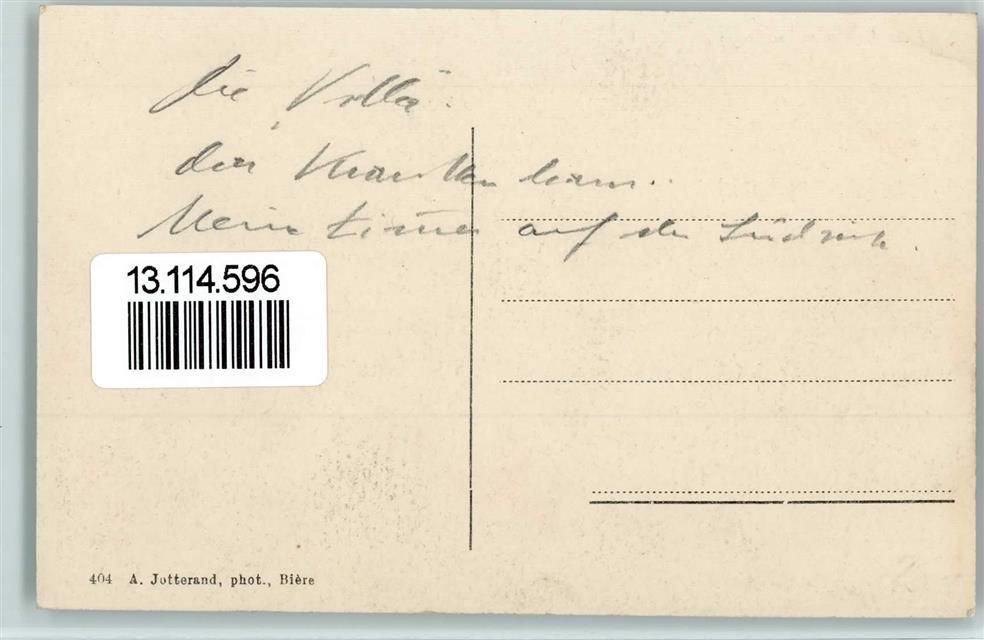 Die Villa.
das Krankenhaus.
Mein Zimmer auf der Südseite.
13.114.596
404 A. Jotterand, phot., Bière